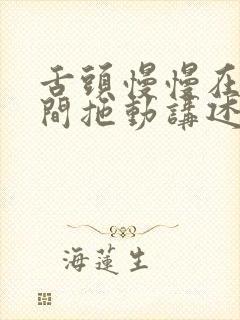 舌頭慢慢在
間拖動講述
海蓮生